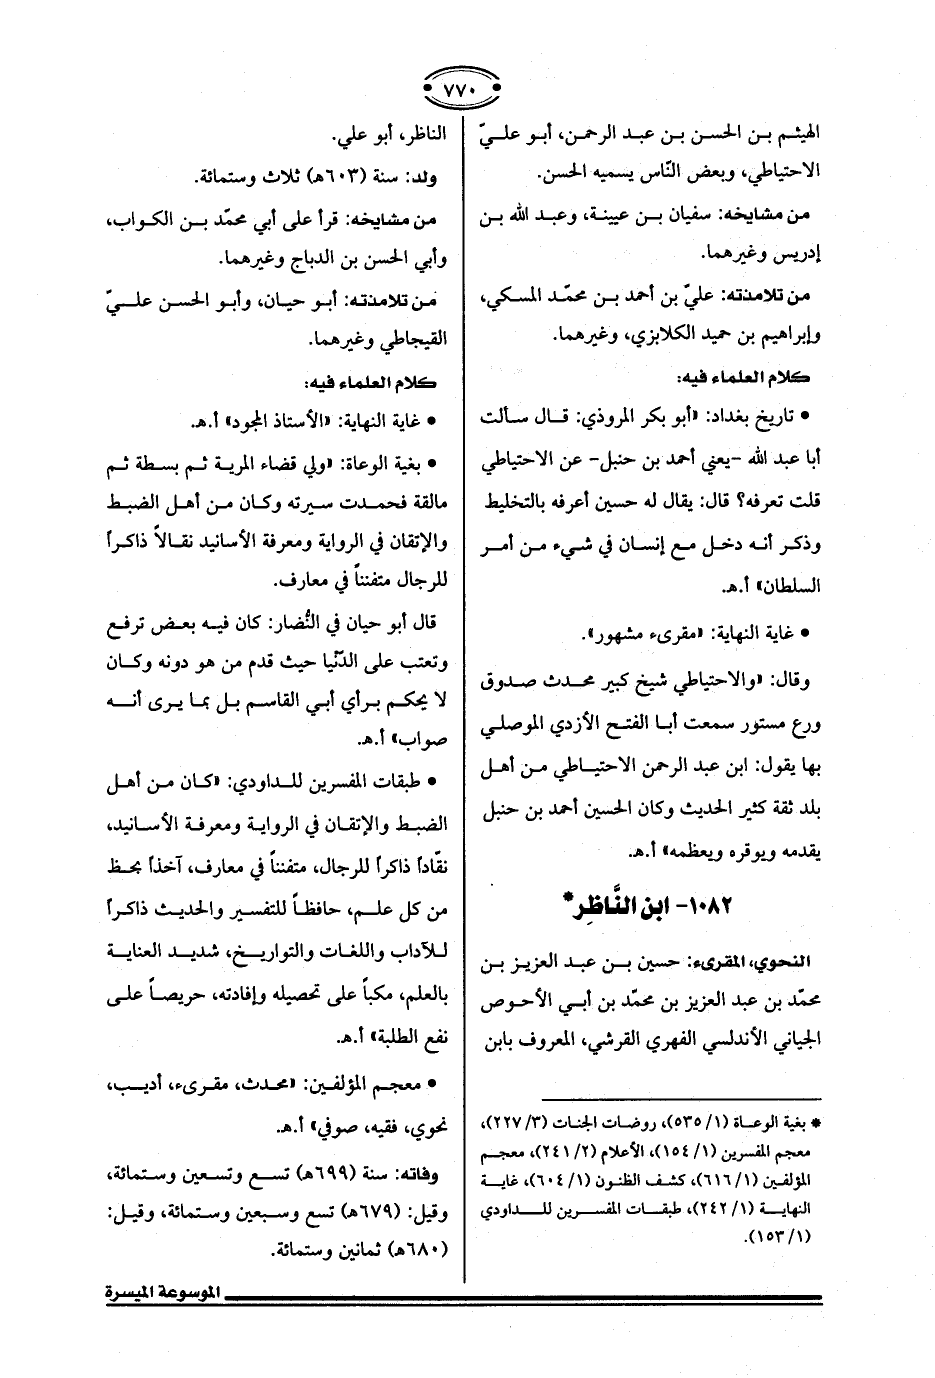 ٧٧٠
الهيثم بن الحسن بن عبد الرحمن، أبو عليّ
الاحتياطي، وبعض النّاس يسميه الحسن.
من مشايخه: سفيان بن عيينة، وعبد الله بن
إدريس وغيرهما.
من تلامذته: عليّ بن أحمد بن محمّد المسكي،
وإبراهيم بن حميد الكلابزي، وغيرهما.
كلام العلماء فيه:
• تاريخ بغداد: «أبو بكر المروذي: قال سألت
أبا عبد الله -يعني أحمد بن حنبل- عن الاحتياطي
قلت تعرفه؟ قال: يقال له حسين أعرفه بالتخليط
وذكر أنه دخل مع إنسان في شيء من أمر
السلطان» أ.هـ.
• غاية النهاية: «مقرىء مشهور».
وقال: «والاحتياطي شيخ كبير محدث صدوق
ورع مستور سمعت أبا الفتح الأزدي الموصلي
بها يقول: ابن عبد الرحمن الاحتياطي من أهل
بلد ثقة كثير الحديث وكان الحسين أحمد بن حنبل
يقدمه ويوقره ويعظمه» أ.هـ.
١٠٨٢- ابن النَّاظِر*
النحوي، المقرىء: حسين بن عبد العزيز بن
محمّد بن عبد العزيز بن محمّد بن أبي الأحوص
الجياني الأندلسي الفهري القرشي، المعروف بابن
* بغية الوعاة (١/ ٥٣٥)، روضات الجنات (٣/ ٢٢٧)،
معجم المفسرين (١/ ١٥٤)، الأعلام (٢/ ٢٤١)، معجم
المؤلفين (١/ ٦١٦)، كشف الظنون (١/ ٦٠٤)، غاية
النهاية (١/ ٢٤٢)، طبقات المفسرين للداودي
(١/ ١٥٣).
الناظر، أبو علي.
ولد: سنة (٦٠٣هـ) ثلاث وستمائة.
من مشايخه: قرأ على أبي محمّد بن الكواب،
وأبي الحسن بن الدباج وغيرهما.
من تلامذته: أبو حيان، وأبو الحسن عليّ
القيجاطي وغيرهما.
كلام العلماء فيه:
• غاية النهاية: «الأستاذ المجود» أ.هـ.
• بغية الوعاة: «ولي قضاء المرية ثم بسطة ثم
مالقة فحمدت سيرته وكان من أهل الضبط
والإتقان في الرواية ومعرفة الأسانيد نقالاً ذاكراً
للرجال متفنناً في معارف.
قال أبو حيان في النُّضار: كان فيه بعض ترفع
وتعتب على الدّنيا حيث قدم من هو دونه وكان
لا يحكم برأي أبي القاسم بل بما يرى أنه
صواب» أ.هـ.
• طبقات المفسرين للداودي: «كان من أهل
الضبط والإتقان في الرواية ومعرفة الأسانيد،
نقّاداً ذاكراً للرجال، متفنناً في معارف، آخذاً بحظ
من كل علم، حافظاً للتفسير والحديث ذاكراً
للآداب واللغات والتواريخ، شديد العناية
بالعلم، مكباً على تحصيله وإفادته، حريصاً على
نفع الطلبة» أ.هـ.
• معجم المؤلفين: «محدث، مقرىء، أديب،
نحوي، فقيه، صوفي» أ.هـ.
وفاته: سنة (٦٩٩هـ) تسع وتسعين وستمائة،
وقيل: (٦٧٩هـ) تسع وسبعين وستمائة، وقيل:
(٦٨٠هـ) ثمانين وستمائة.
الموسوعة الميسرة